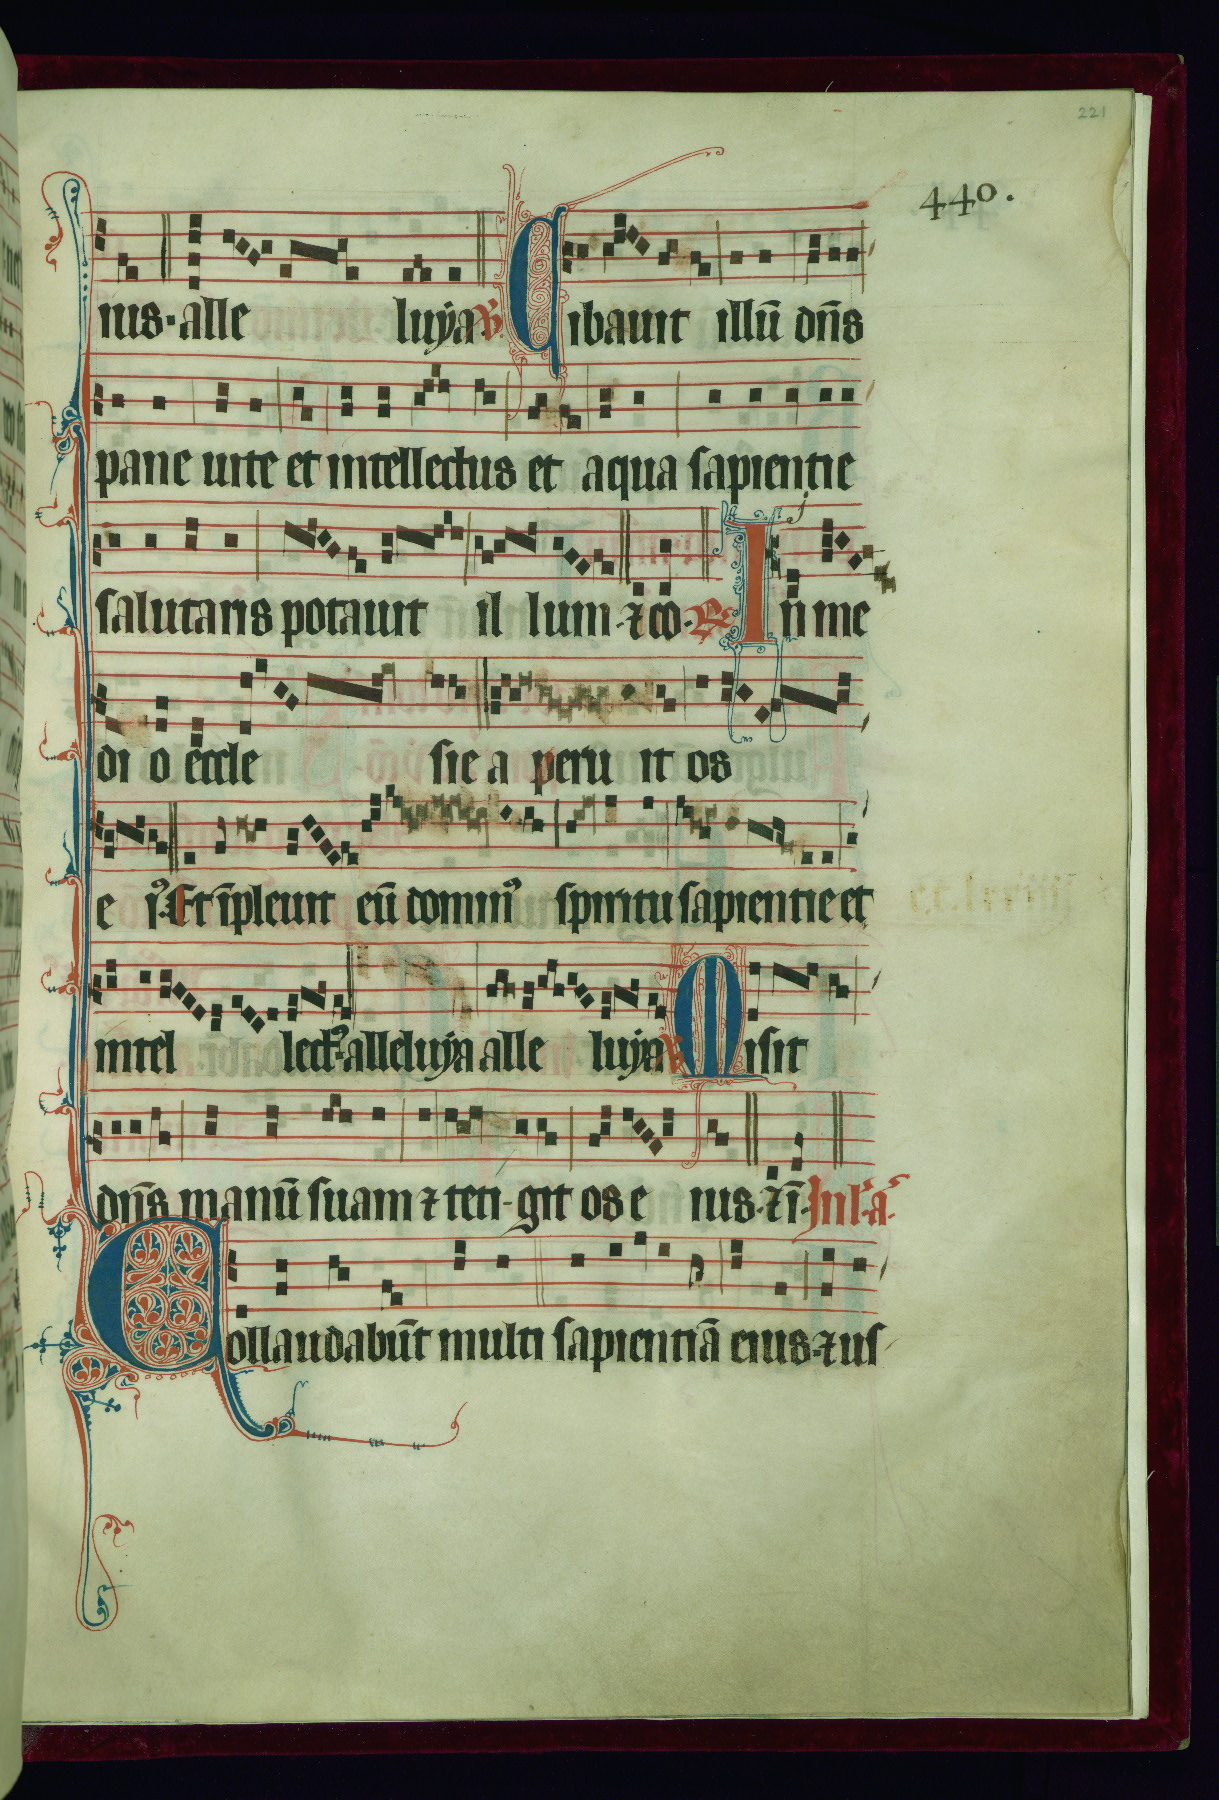 221
440.
ius · alle luya ℣ Cibauit illū dn̄s
pane uite et intellectus et aqua sapientie
salutaris potauit il lum · ⁊ cō · ℟ In me
di o eccle sie a peru it os
e iꝰ · Et īpleuit eū dominꝰ spiritu sapientie et
intel lectꝰ · alleluya alle luya ℣ Misit
dn̄s manū suam ⁊ teti - git os e ius · ⁊ ī · In l' · a ·
Collaudabūt multi sapientiā eius · ⁊ us